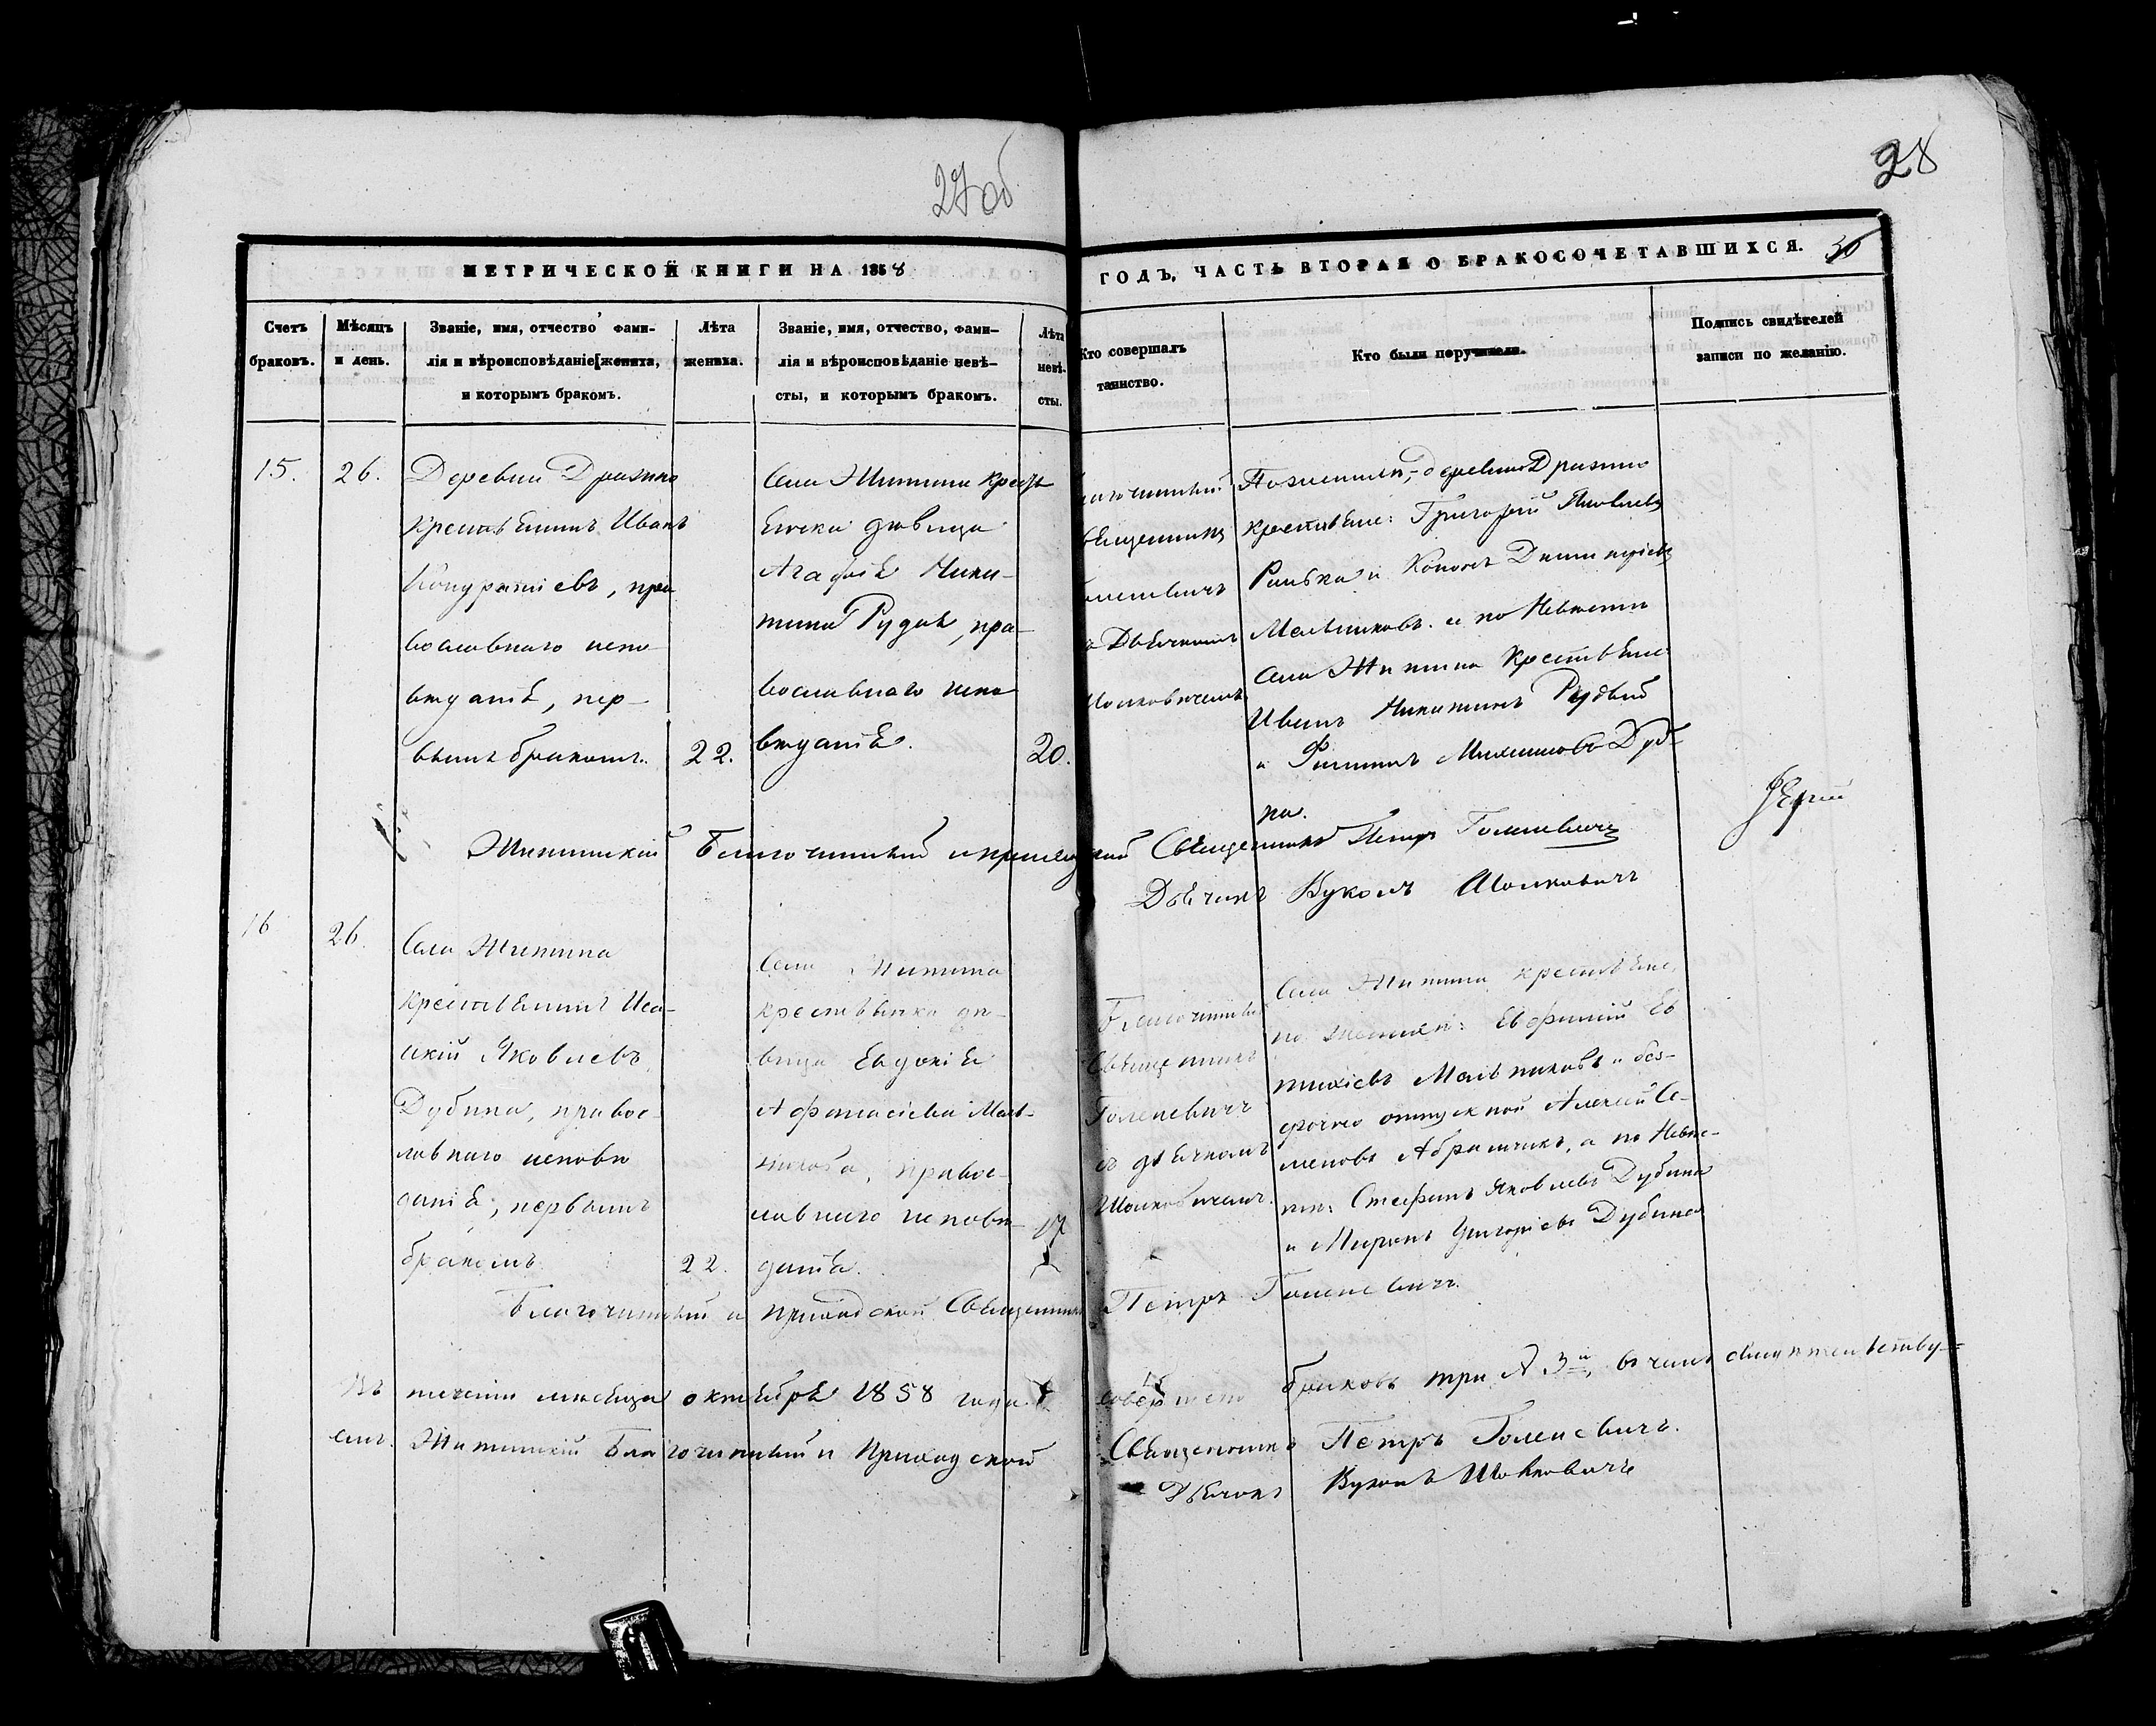 27об
28
МЕТРИЧЕСКОЙ КНИГИ НА 1858
ГОДЪ, ЧАСТЬ ВТОРАЯ О БРАКОСОЧЕТАВШИХСЯ.
Счетъ
браковъ.
Мѣсяцъ
и день.
Званіе, имя, отчество фами-
лія и вѣроисповѣданіе жениха,
и которымъ бракомъ.
Лѣта
жениха.
Званіе, имя, отчество, фами-
лія и вѣроисповѣданіе невѣ-
сты, и которымъ бракомъ.
Лѣта
невѣ-
сты.
Кто совершалъ
таинство.
Кто были поручители.
Подпись свидѣтелей
записи по желанію.
15.
26.
Деревни
крестьянинъ Иванъ
Кондратіевъ, пра
вославнаго испо
вѣданія, пер-
вымъ бракомъ.
22.
Села Житина кресть
янска дѣвица
Агафія Ники-
тина Рудая, пра-
вославнаго испо
вѣданія.
20.
Благочинный
Священникъ
Голеневичъ
съ Дьячкомъ
По женихѣ, деревни
крестьяне: Григорій Яковлевъ
и Кононъ Димитріевъ
Мельниковъ. и по Невѣстѣ
села Житина Крестьяне
Иванъ Никитинъ Рудый
и Филиппъ Дуб-
на.
Житинскій Благочинный и приходской Священникъ Петръ Голеневичъ
Дьячекъ Вуколъ
16
26.
Села Житина
крестьянинъ Иса-
акій Яковлевъ
Дубина, правос-
лавнаго исповѣ
данія, первымъ
бракомъ
22.
Села Житина
крестьянка дѣ-
вица Евдокія
Афанасіева Мель-
никова, правос-
лавнаго исповѣ-
данія.
17
Благочинный
Священникъ
Голеневичъ
съ дьячкомъ
Села Житина крестьяне,
по женихѣ: Евфимій Ев
тихіевъ Мельниковъ и без-
срочно отпускной Алексѣй Се-
меновъ Абрамчикъ, а по Невѣс-
тѣ: Стефанъ Яковлевъ Дубина
и Миронъ Григоріевъ Дубина
Благочинный и приходской Священникъ Петръ Голеневичъ.
Въ теченіи мѣсяца октября 1858 года совершено браковъ три А 3-й, въ чемъ свидѣтельству-
емъ. Житинскій Благочинный и Приходской Священникъ Петръ Голеневичъ.
Дьячекъ Вуколъ